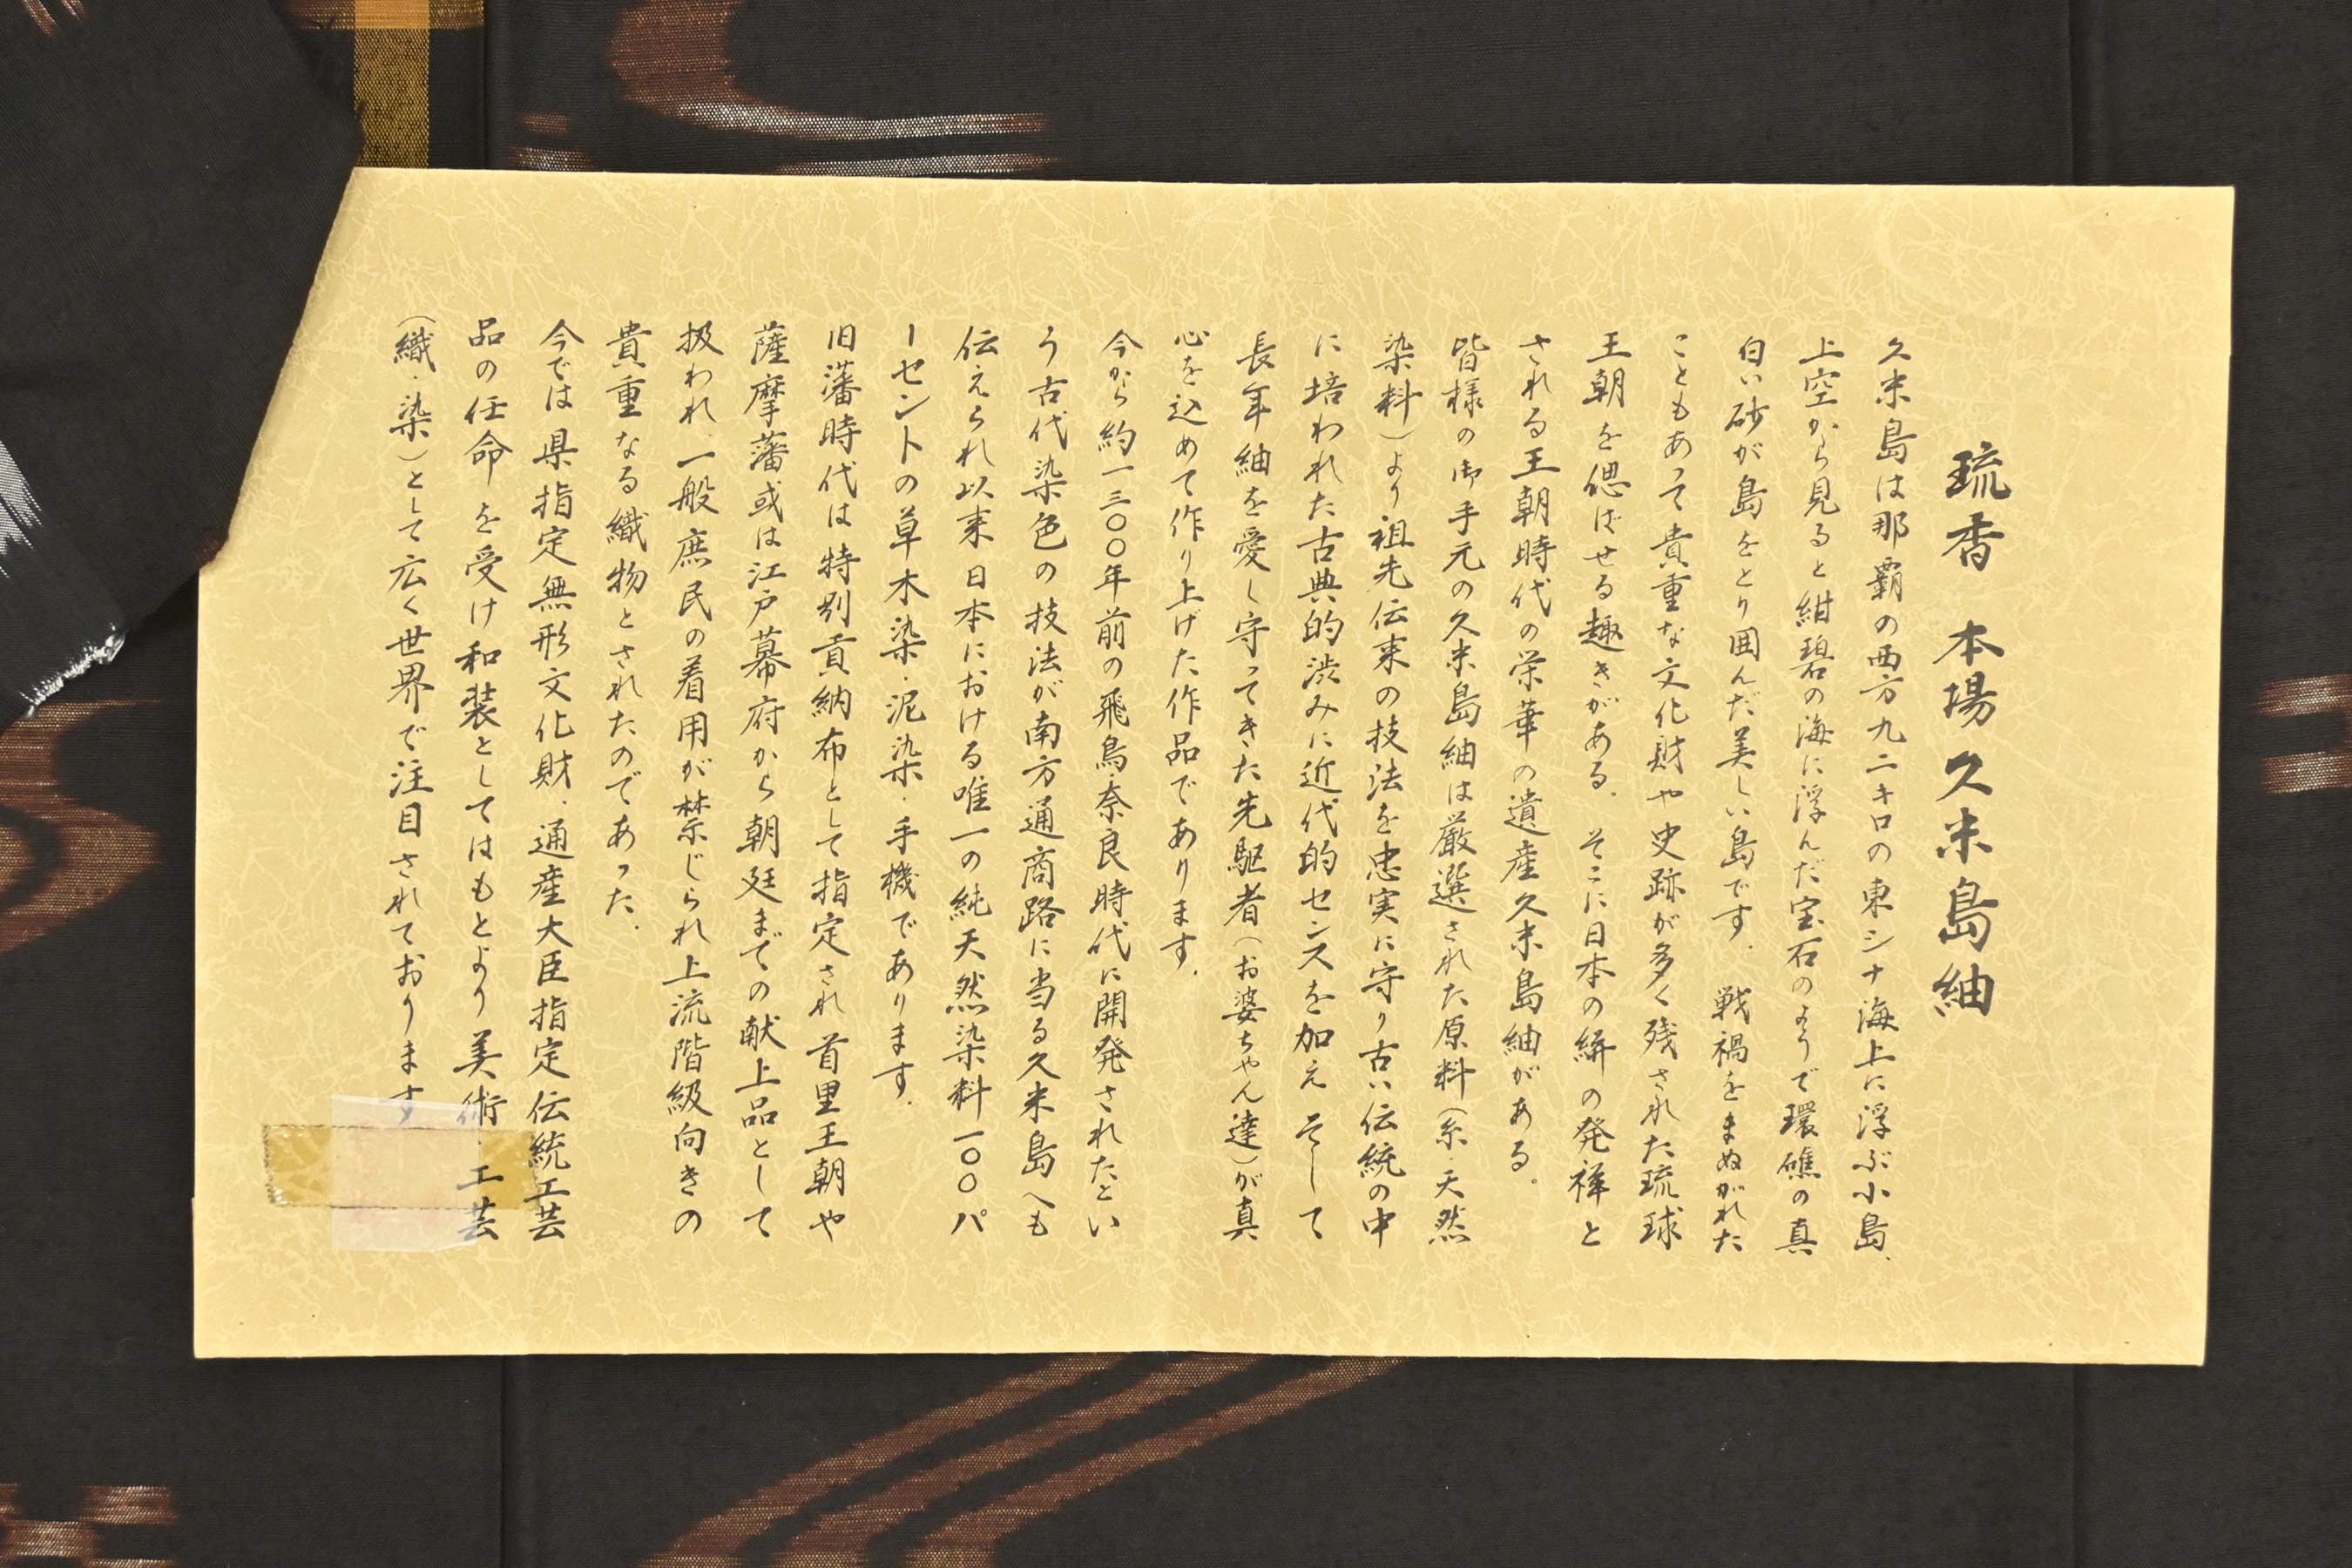 琉香 本場久米島紬
久米島は那覇の西方九二キロの東シナ海上に浮ぶ小島、
上空から見ると紺碧の海に浮んだ宝石のようで環礁の真
白い砂が島をとり囲んだ美しい島です。戦禍をまぬがれた
こともあって貴重な文化財や史跡が多く残された琉球
王朝を偲ばせる趣きがある。そこに日本の絣の発祥と
される王朝時代の栄華の遺産久米島紬がある。
皆様の御手元の久米島紬は厳選された原料(糸・天然
染料)より祖先伝来の技法を忠実に守り古い伝統の中
に培われた古典的渋みに近代的センスを加えそして
長年紬を愛し守ってきた先駆者(お婆ちゃん達)が真
心を込めて作り上げた作品であります。
今から約一三〇〇年前の飛鳥・奈良時代に開発されたとい
う古代染色の技法が南方通商路に当る久米島へも
伝えられ以来日本における唯一の純天然染料一〇〇パ
ーセントの草木染・泥染・手機であります。
旧藩時代は特別貢納布として指定され首里王朝や
薩摩藩或は江戸幕府から朝廷までの献上品として
扱われ、一般庶民の着用が禁じられ上流階級向きの
貴重なる織物とされたのであった。
今では県指定無形文化財、通産大臣指定伝統工芸
品の任命を受け和装としてはもとより美術・工芸
(織・染)として広く世界で注目されております